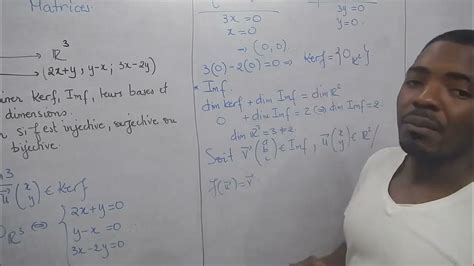 Matrices.
ℝ³
(2x+y; y-x; 3x-2y)
Kerf, Imf, leurs bases et
dimensions.
si f est injective, surjective ou
bijective.
3
u⃗(x y) ∈ Kerf
ℝ³ ⟺ { 2x+y=0
y-x=0
3x-2y=0
3x=0
3y=0
x=0
y=0.
⇒ (0,0).
3(0)-2(0)=0 ⇒ Kerf={0ℝ²}
* Imf.
dim kerf + dim Imf = dim ℝ²
0 + dim Imf = 2 ⟺ dim Imf = 2.
dim ℝ³ = 3 ≠ 2
Soit v⃗(a b c) ∈ Imf, u⃗(x y) ∈ ℝ² /
f(u⃗)=v⃗.